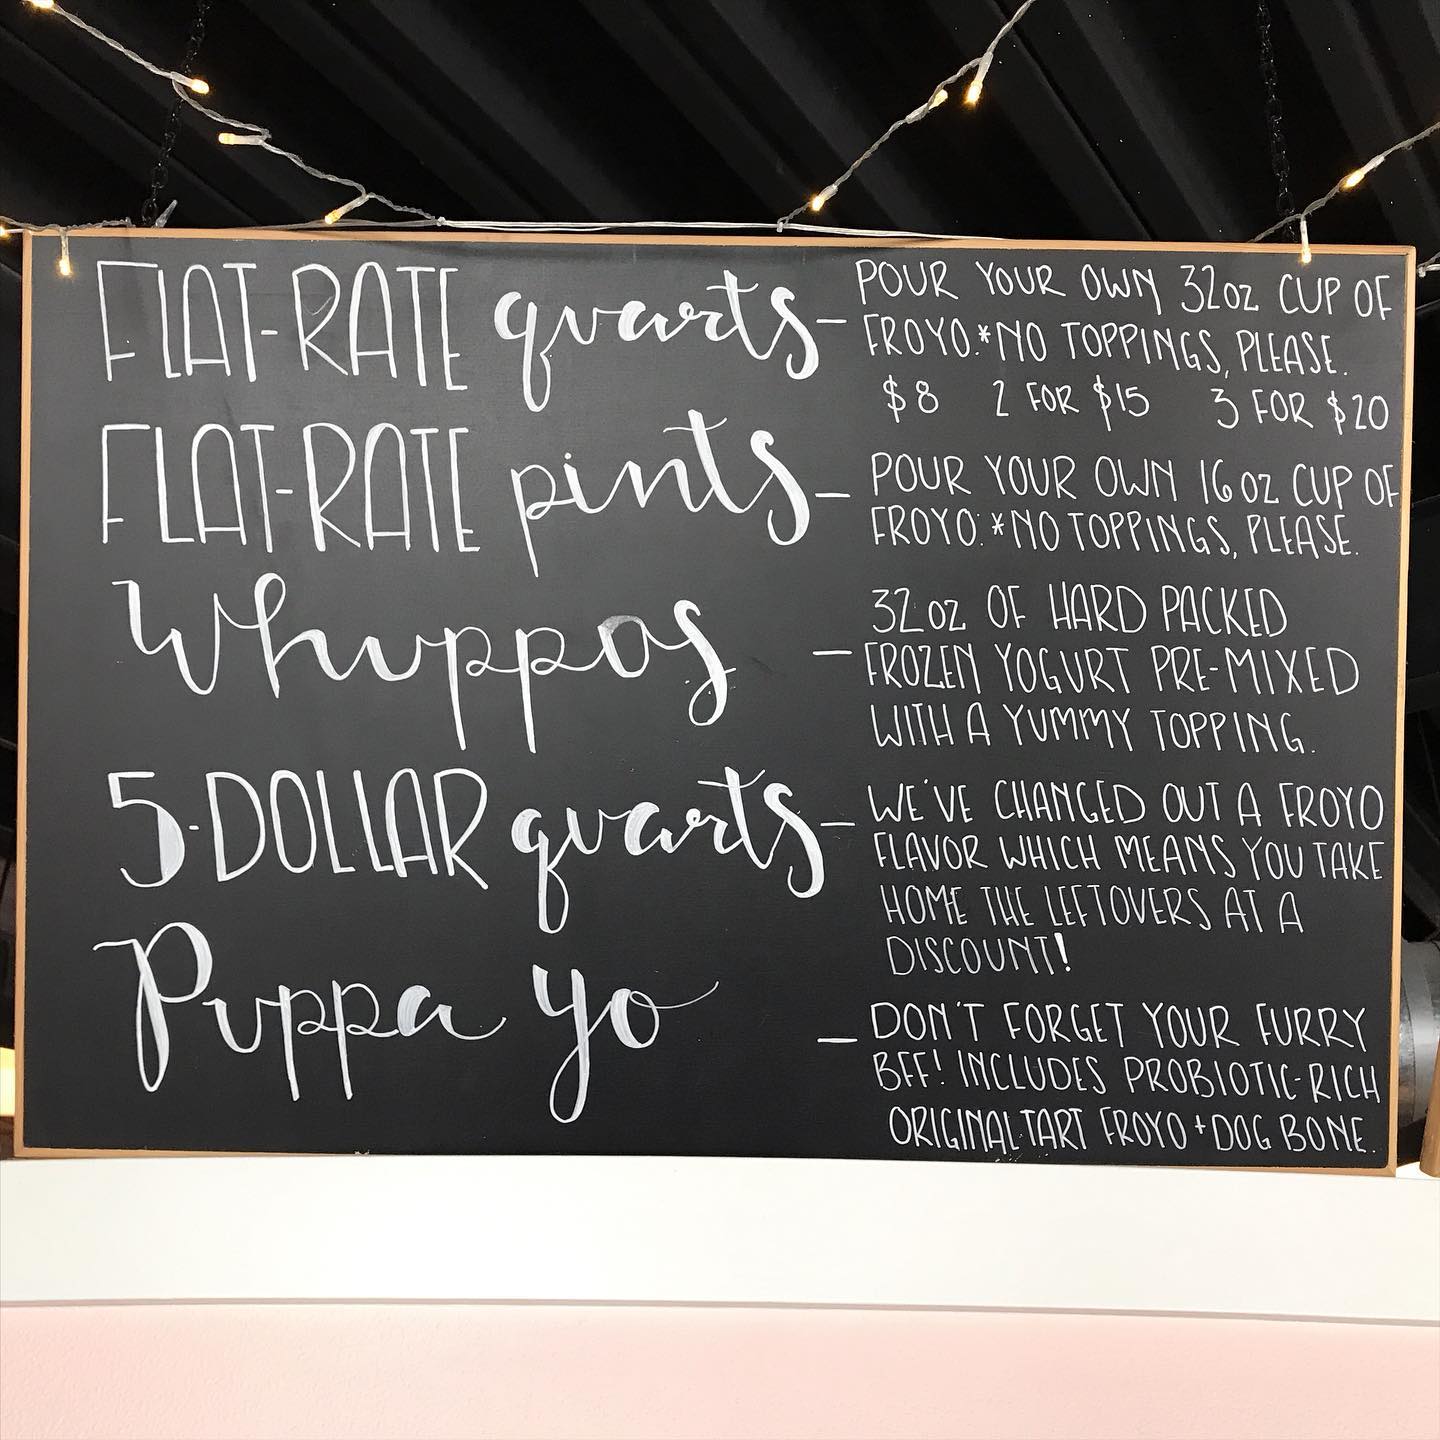 FLAT-RATE quarts - POUR YOUR OWN 32oz CUP OF
FROYO.*NO TOPPINGS, PLEASE.
$8 2 FOR $15 3 FOR $20
FLAT-RATE pints - POUR YOUR OWN 16oz CUP OF
FROYO. *NO TOPPINGS, PLEASE.
Whuppos - 32oz OF HARD PACKED
FROZEN YOGURT PRE-MIXED
WITH A YUMMY TOPPING.
5-DOLLAR quarts - WE'VE CHANGED OUT A FROYO
FLAVOR WHICH MEANS YOU TAKE
HOME THE LEFTOVERS AT A
DISCOUNT!
Puppa yo - DON'T FORGET YOUR FURRY
BFF! INCLUDES PROBIOTIC-RICH
ORIGINAL TART FROYO + DOG BONE.